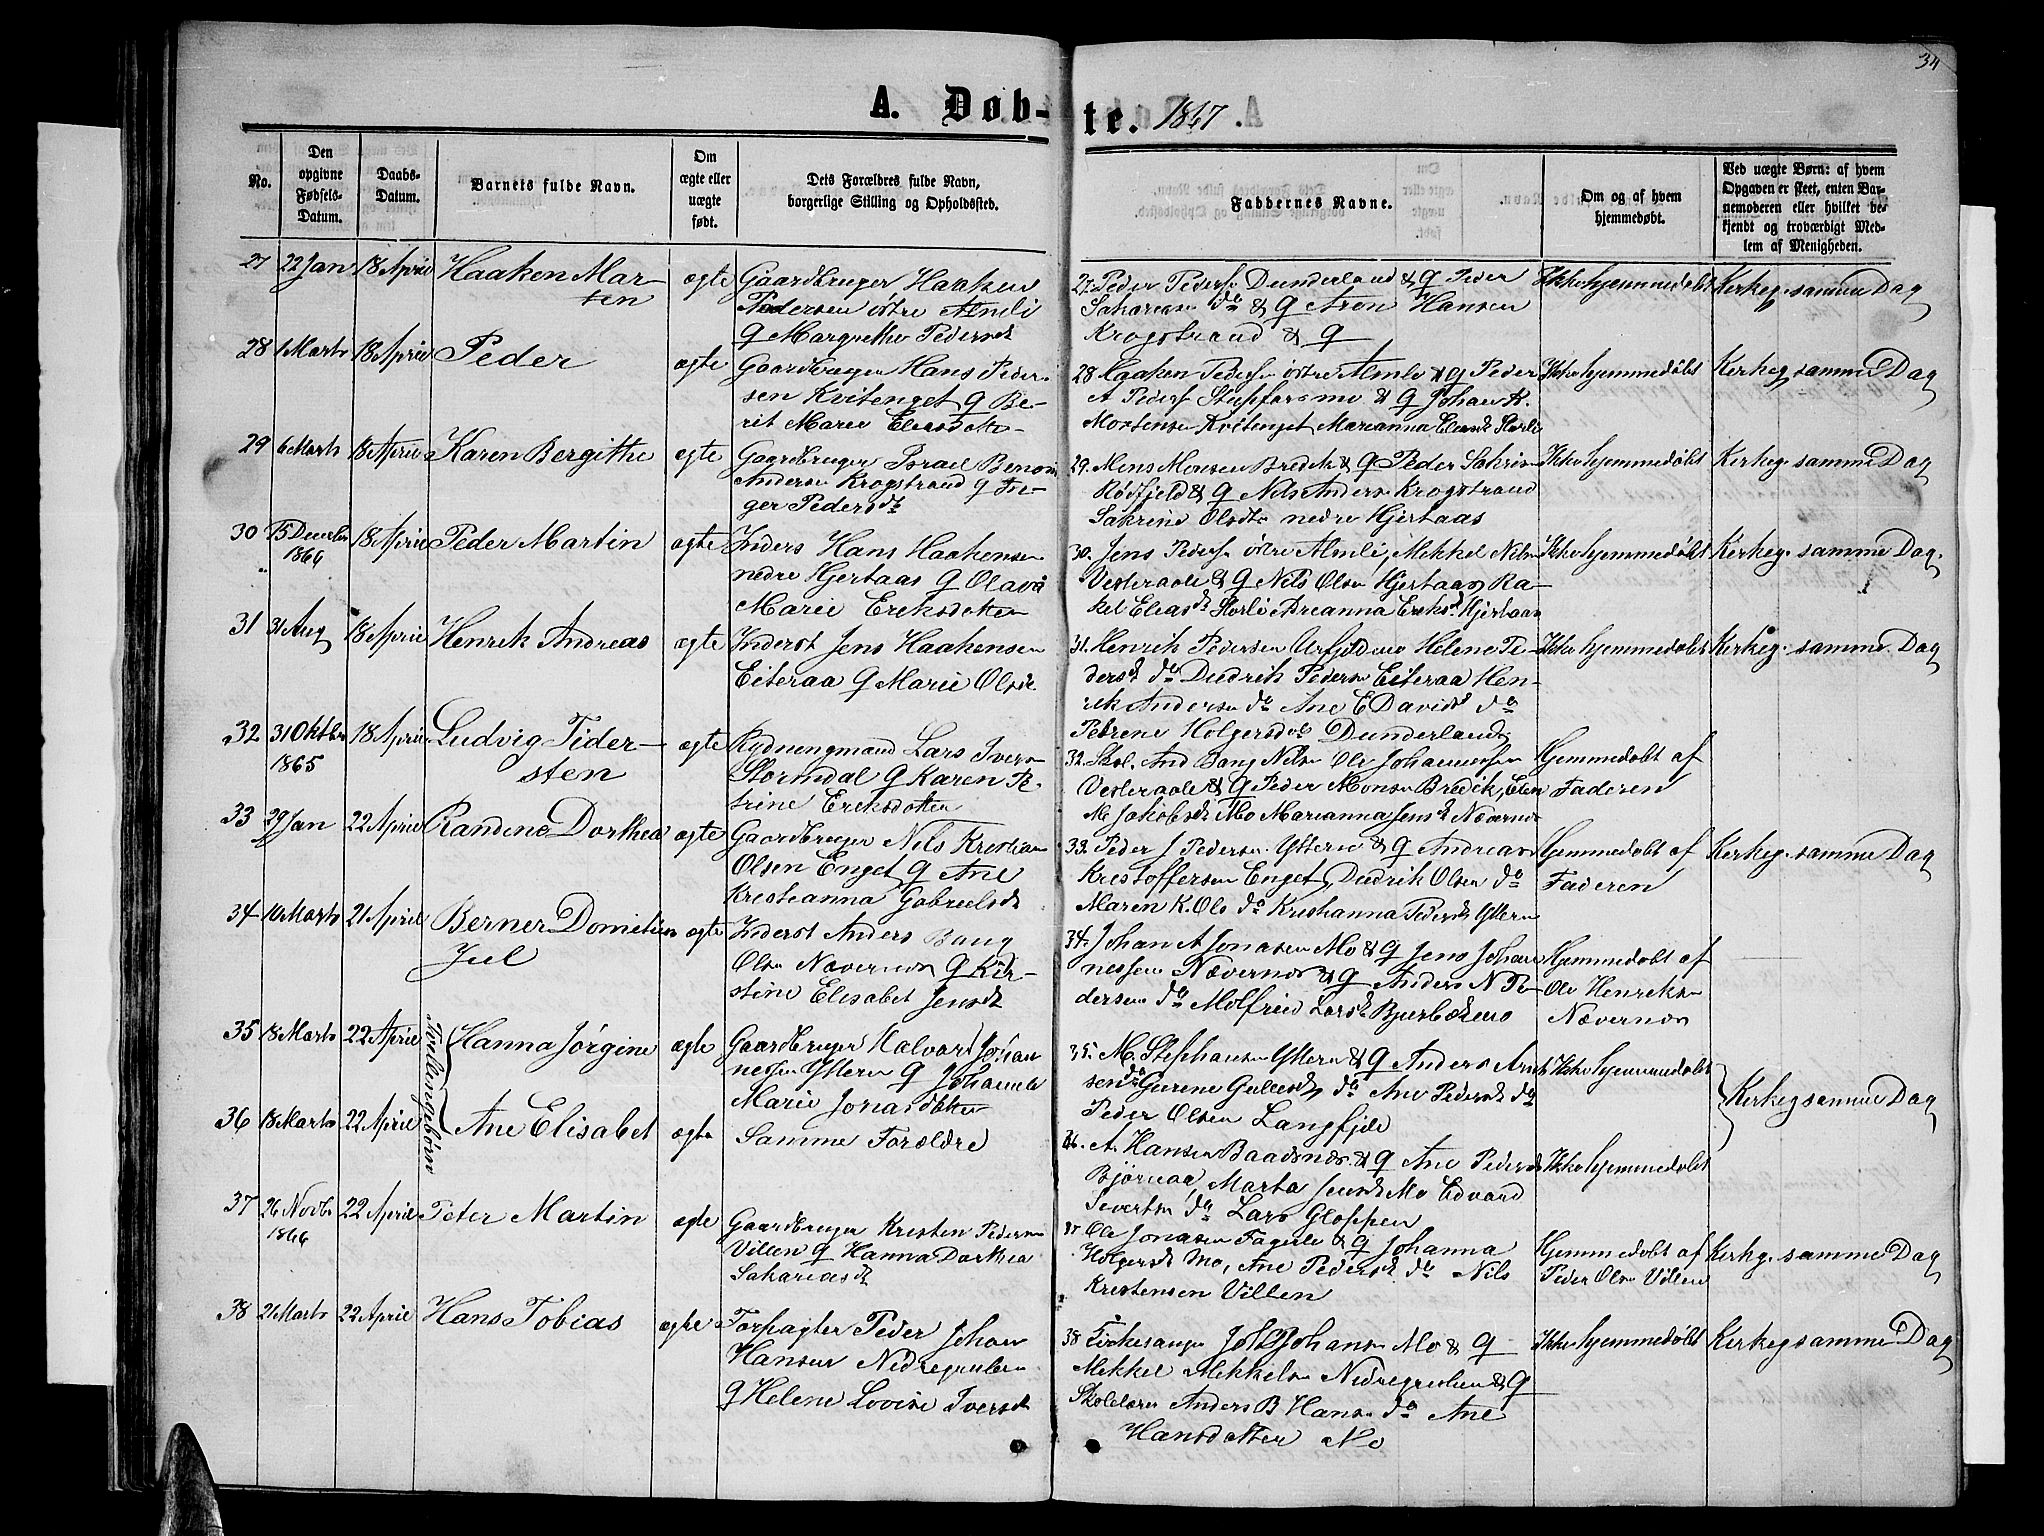 34
A. Døb-te. 1867
No.
Den opgivne Fødsels-Datum.
Daabs-Datum.
Barnets fulde Navn.
Om ægte eller uægte født.
Dets Forældres fulde Navn, borgerlige Stilling og Opholdssted.
Faddernes Navne.
Om og af hvem hjemmedøbt.
Ved uægte Børn: af hvem Opgaven er skeet, enten Barnemoderen eller hvilket bekjendt og troværdigt Medlem af Menigheden.
27 22 Jan 18 April Haaken Mar-
ten
ægte Gaardbruger Haaken
Pedersen østre Almli
& Margrethe Pedersdt
27. Peder Peders. Dunderland & & Peder
Sakariasen do & & Aron Hansen
Krogstrand & &
Ikke hjemmedøbt Kirkeg. samme Dag
28 1 Marts 18 April Peder
ægte Gaardbruger Hans Peder-
sen Kvitenget & Be-
rit Marie Eliasdatter
28 Haaken Peders. østre Almli & & Peder
A Peders. Stupforsmo & & Johan K.
Mortensen Kvitenget Marianna Eliasdt Storli
Ikke hjemmedøbt Kirkeg samme Dag
29 6 Marts 18 April Karen Bergithe
ægte Gaardbruger Israel Benoni
Andersen Krogstrand & In-
ger Pedersdt
29. Mons Monsen Bredik & & Peder Sakris
Rødfjeld & & Nils Anders. Krogstrand
Sakrine Olsdt nedre Hjertaas
Ikke hjemmedøbt Kirkeg. samme Dag
30 15 Decembr 1866 18 April Peder Martin
ægte Inders Hans Haakensen
nedre Hjertaas & Olava
Marie Eriksdatter
30. Jens Peders. østre Almli, Mekkel Nils
Vesteraali & & Nils Olsen Hjertaas Ra-
kel Eliasdt Storli Arianna Eriksdt Hjertaas
Ikke hjemmedøbt Kirkeg. samme Dag.
31 31 Aug 18 April Henrik Andreas
ægte Inderst Jens Haakensen
Eiteraa & Marie Olsdt
31. Henrik Pedersen Urfjeldmo Helene Pe-
dersdt do Didrik Peders. Eiteraa Hen-
rik Andersen do Ane E Davidsdt do
Petrine Holgersdt Dunderland
Ikke hjemmedøbt Kirkeg. samme Dag
32 31 Oktbr 1865 18 April Ludvig Tider-
sten
ægte Rydningmand Lars Ivers.
Stormdal & Karen Pe-
trine Eriksdatter
32. Skol. And Bang Nilsen Ole Johannessen
Vesteraali & & Peder Monsen Bredik, Elen
M Jakobsdt Mo Marianna Jensdt Nævernes
Hjemmedøbt af
Faderen
33 29 Jan 22 April Randine Dorthea
ægte Gaardbruger Nils Kristian
Olsen Enget & Ane
Kristianna Gabrielsdt
33. Peder J Pedersen Ytteren & & Andreas
Kristoffersen Enget, Didrik Olsen do
Maren K. Ols. do Kristianna Pedersdt Ytteren
Hjemmedøbt af
Faderen
Kirkeg. samme Dag
34 10 Marts 21 April Berner Domitian
Juel
ægte Inderst Anders Bang
Olsen Nævernes & Kir-
stine Elisabet Jensdt
34. Johan A Jonasen Mo & & Jens Johan-
nessen Nævernes & & Anders N Pe-
dersen do Molfrid Larsdt Bjerbækmo
Hjemmedøbt af
Ole Henriks.
Nævernes
Tvillingebørn
35 18 Marts 22 April Hanna Jørgine
ægte Gaardbruger Halvard Johan-
nessen Ytteren & Johanna
Marie Jonasdatter
35. M. Stephansen Ytteren & & Anders Arnt-
sen do Gurine Gullesdt do Ane Pedersdt do
Peder Olsen Langfjeld
Ikke hjemmedøbt
Kirkeg samme Dag
36 18 Marts 22 April Ane Elisabet
ægte Samme Forældre
36. A. Hansen Baadsnes & & Ane Pedersdt
Bjørnaa Marta Jensdt Mo Edvard
Sivertsen do Lars Gloppen
Ikke hjemmedøbt
37 26 Novbr 1866 22 April Peter Martin
ægte Gaardbruger Kristen Pedersen
Villen & Hanna Dorthea
Sakariasdt
37 Ole Jonasen Fagerli & & Johanna
Holgersdt Mo, Ane Pedersdt do Nils
Kristensen Villen
Hjemmedøbt af
Peder Olsen Villen
Kirkeg. samme Dag
38 21 Marts 22 April Hans Tobias
ægte Forpagter Peder Johan
Hansen Nedregruben
& Helene Lovise Iversdt
38 Kirkesanger Joh Johans. Mo & &
Mekkel Mekkelsen Nedregruben & &
Skolelærer Anders B Hans. do Ane
Hansdatter Mo
Ikke hjemmedøbt Kirkeg samme Dag